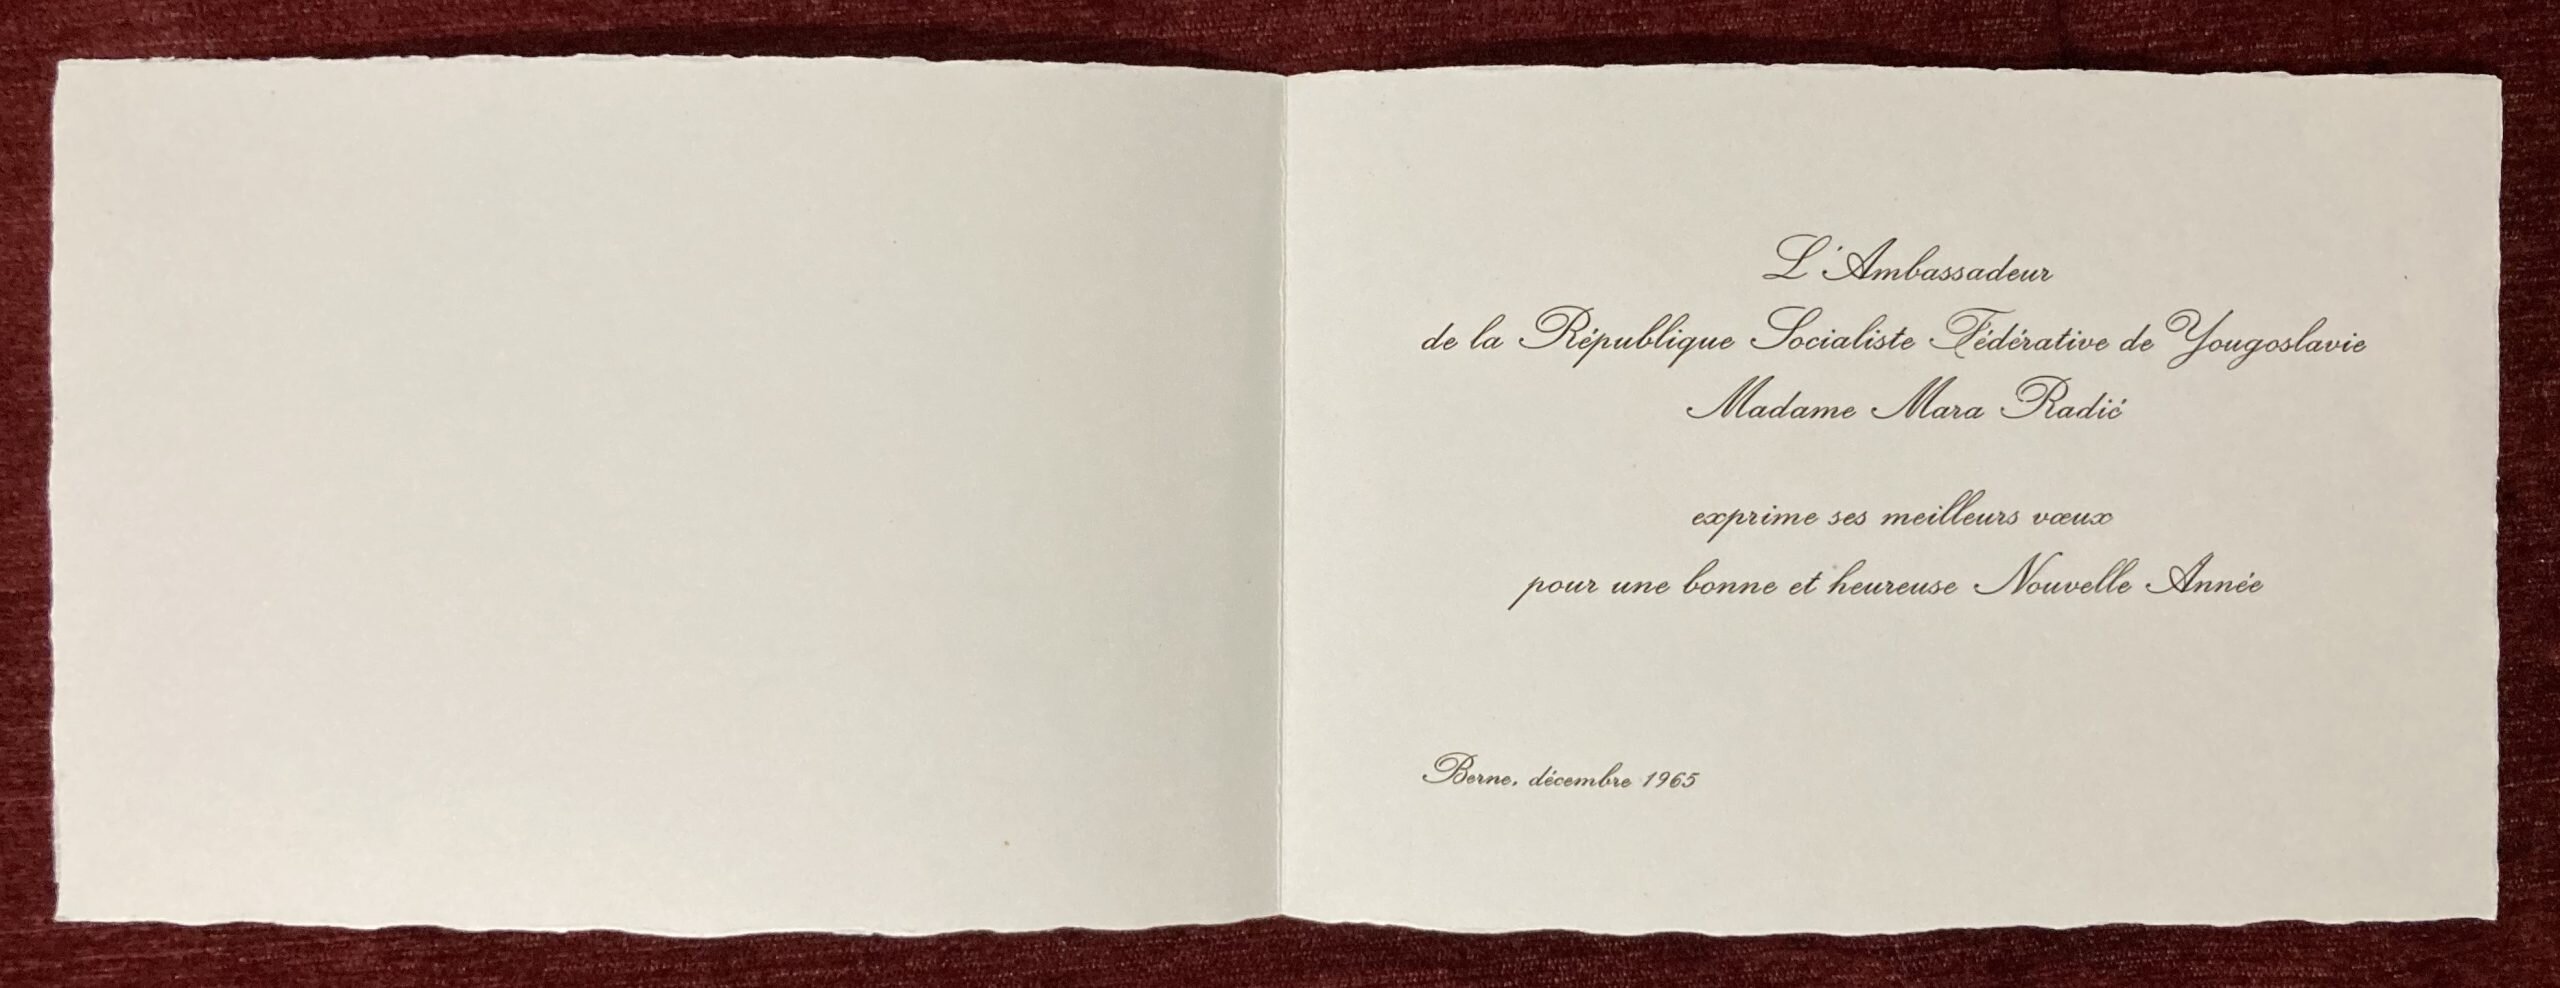 L'Ambassadeur
de la République Socialiste Fédérative de Yougoslavie
Madame Mara Radić
exprime ses meilleurs vœux
pour une bonne et heureuse Nouvelle Année
Berne, décembre 1965